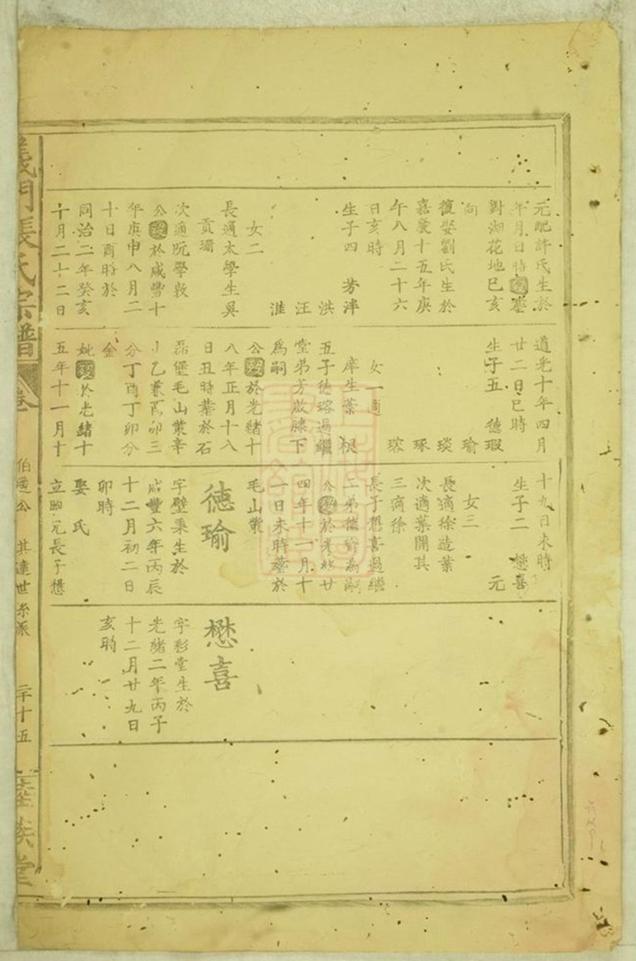 元配許氏生於
年月日時歿塟
對湖花地巳亥
向
復娶劉氏生於
嘉慶十五年庚
午八月二十六
日亥時
生子四 芳洋
洪
汪
淮
女二
長適太學生吳
貢珊
次適阮學敦
公歿於咸豐十
年庚申八月二
十日酉時於
同治二年癸亥
十月二十二日
道光十年四月
廿二日巳時
生子五 德瑕
瑜
琰
琢
瑢
女一適
庠生葉
五子德瑢過繼
堂弟芳啟膝下
為嗣
公歿於光緒十
八年正月十八
日丑時葬於石
磊堡毛山業辛
乙兼酉卯三
分丁酉丁卯分
金
妣歿於光緒十
五年十一月十
十九日未時
生子二 懋喜
元
女三
長適徐造業
次適葉開其
三適徐
長子懋喜過繼
二弟德瑜為嗣
公歿於光緒廿
四年十一月十
一日未時葬於
毛山業
德瑜
字璧秉生於
咸豐六年丙辰
十二月初二日
卯時
娶氏
立胞兄長子懋
懋喜
字彩堂生於
光緒二年丙子
十二月廿九日
亥時
義門張氏宗譜
卷
伯達公 其達世系派
二十五
睦族堂